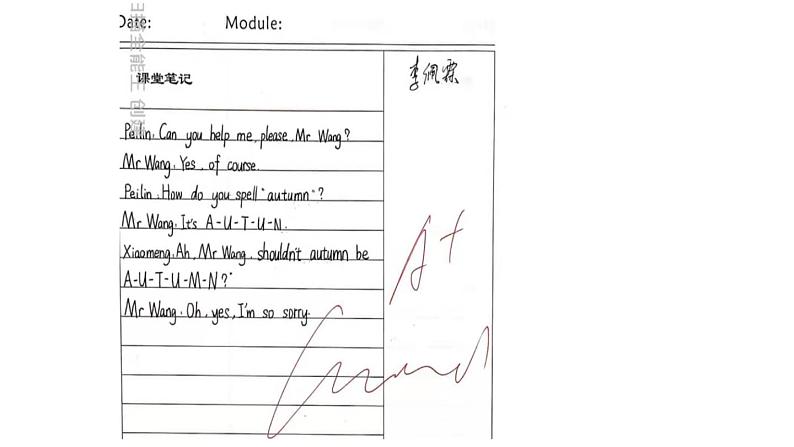 Date: Module:
课堂笔记
李佩霖
Peilin: Can you help me, please, Mr Wang?
Mr Wang: Yes, of course.
Peilin: How do you spell "autumn"?
Mr Wang: It's A-U-T-U-N.
Xiaomeng: Ah, Mr Wang, shouldn't autumn be
A-U-T-U-M-N?"
Mr Wang: Oh, yes, I'm so sorry.
A+